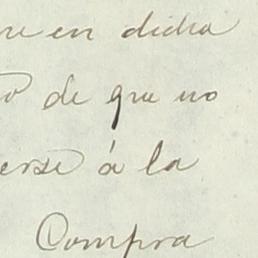 en dicha
de que no
erse á la
Compra